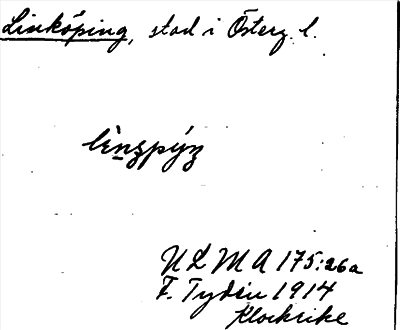 Linköping, stad i Österg. l.
ULMA 175:26a
F. Tydén 1914
Klockrike